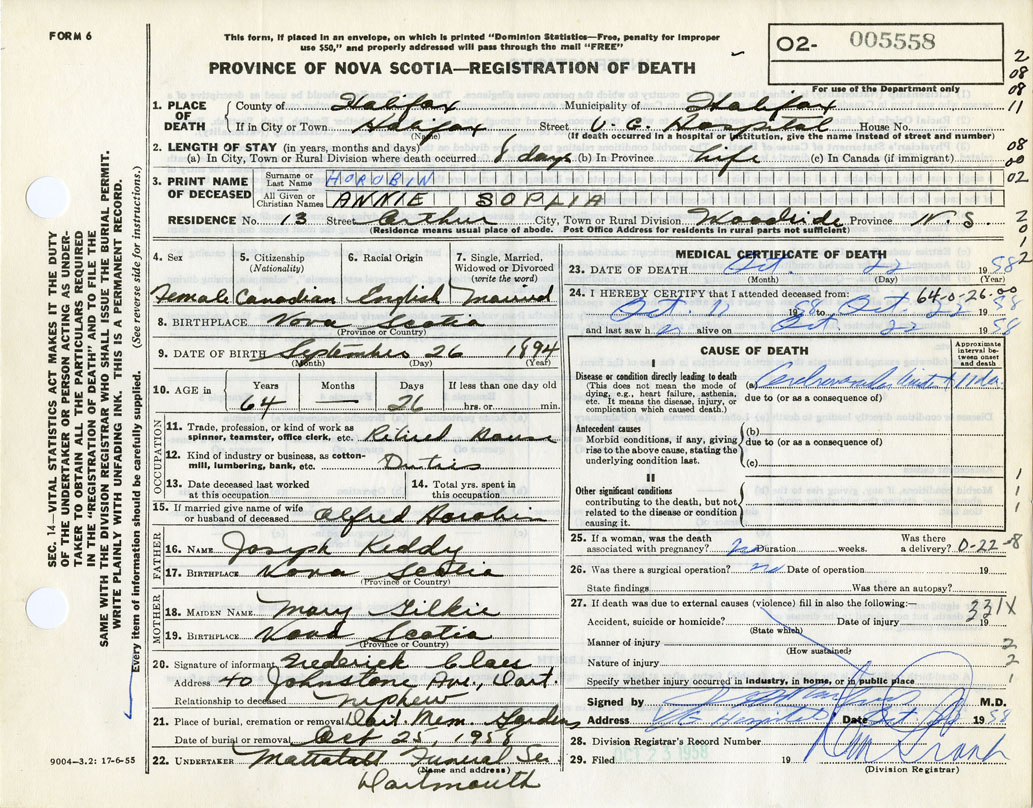 FORM 6
This form, if placed in an envelope, on which is printed "Dominion Statistics—Free, penalty for improper
use $50," and properly addressed will pass through the mail "FREE"
PROVINCE OF NOVA SCOTIA—REGISTRATION OF DEATH
O2- 005558
For use of the Department only
2
08
08
11
08
00
02
2
0
1
2
SEC. 14—VITAL STATISTICS ACT MAKES IT THE DUTY
OF THE UNDERTAKER OR PERSON ACTING AS UNDER-
TAKER TO OBTAIN ALL THE PARTICULARS REQUIRED
IN THE "REGISTRATION OF DEATH" AND TO FILE THE
SAME WITH THE DIVISION REGISTRAR WHO SHALL ISSUE THE BURIAL PERMIT.
WRITE PLAINLY WITH UNFADING INK. THIS IS A PERMANENT RECORD.
Every item of information should be carefully supplied. (See reverse side for instructions.)
1. PLACE OF DEATH
County of Halifax Municipality of Halifax
If in City or Town Halifax Street V. G. Hospital House No.
(Name) (If death occurred in a hospital or institution, give the name instead of street and number)
2. LENGTH OF STAY (in years, months and days)
(a) In City, Town or Rural Division where death occurred days (b) In Province life (c) In Canada (if immigrant)
3. PRINT NAME OF DECEASED
Surname or Last Name HOROBIN
All Given or Christian Names ANNIE SOPHIA
RESIDENCE No. 13 Street Arthur City, Town or Rural Division Woodside Province N. S.
(Residence means usual place of abode. Post Office Address for residents in rural parts not sufficient)
4. Sex Female
5. Citizenship (Nationality) Canadian
6. Racial Origin English
7. Single, Married, Widowed or Divorced (write the word) Married
8. BIRTHPLACE Nova Scotia
(Province or Country)
9. DATE OF BIRTH September 26 1894
(Month) (Day) (Year)
10. AGE in Years Months Days If less than one day old
64 — 26 hrs. or min.
OCCUPATION
11. Trade, profession, or kind of work as
spinner, teamster, office clerk, etc. Retired House
12. Kind of industry or business, as cotton-
mill, lumbering, bank, etc. Duties
13. Date deceased last worked
at this occupation
14. Total yrs. spent in
this occupation
15. If married give name of wife
or husband of deceased Alfred Horobin
FATHER
16. NAME Joseph Keddy
17. BIRTHPLACE Nova Scotia
(Province or Country)
MOTHER
18. MAIDEN NAME Mary Gilkie
19. BIRTHPLACE Nova Scotia
(Province or Country)
20. Signature of informant Frederick Claes
Address 40 Johnstone Ave., Dart.
Relationship to deceased Nephew
21. Place of burial, cremation or removal Dart. Mem. Gardens
Date of burial or removal Oct 25, 1958
22. UNDERTAKER Mattatall Funeral Ser
(Name and address)
Dartmouth
9004—3.2: 17-6-55
MEDICAL CERTIFICATE OF DEATH
23. DATE OF DEATH Oct. 22 1958
(Month) (Day) (Year)
64-0-26-00
24. I HEREBY CERTIFY that I attended deceased from:
Oct. 11 1958 to Oct. 22 1958
and last saw h er alive on Oct 22 1958
CAUSE OF DEATH
Approximate interval between onset and death
I
Disease or condition directly leading to death
(This does not mean the mode of
dying, e.g., heart failure, asthenia,
etc. It means the disease, injury, or
complication which caused death.)
(a) Cerebrovascular Accident 11 da.
due to (or as a consequence of)
Antecedent causes
Morbid conditions, if any, giving
rise to the above cause, stating the
underlying condition last.
(b)
due to (or as a consequence of)
(c)
II
Other significant conditions
contributing to the death, but not
related to the disease or condition
causing it.
1
1
1
25. If a woman, was the death
associated with pregnancy? no Duration weeks. Was there
a delivery? 0-22-8
26. Was there a surgical operation? no Date of operation 19
State findings Was there an autopsy?
27. If death was due to external causes (violence) fill in also the following:—
331X
Accident, suicide or homicide? Date of injury 19
(State which)
Manner of injury 2
(How sustained)
Nature of injury 2
Specify whether injury occurred in industry, in home, or in public place 1
Signed by M.D.
Address V G Hospital Date Oct 1958
28. Division Registrar's Record Number
29. Filed OCT 23 1958 19
(Division Registrar)